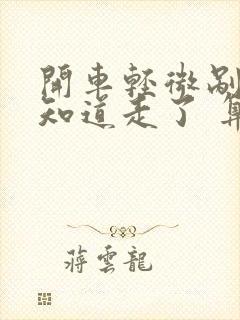 開車輕微剮
知道走了 算
蔣雲龍